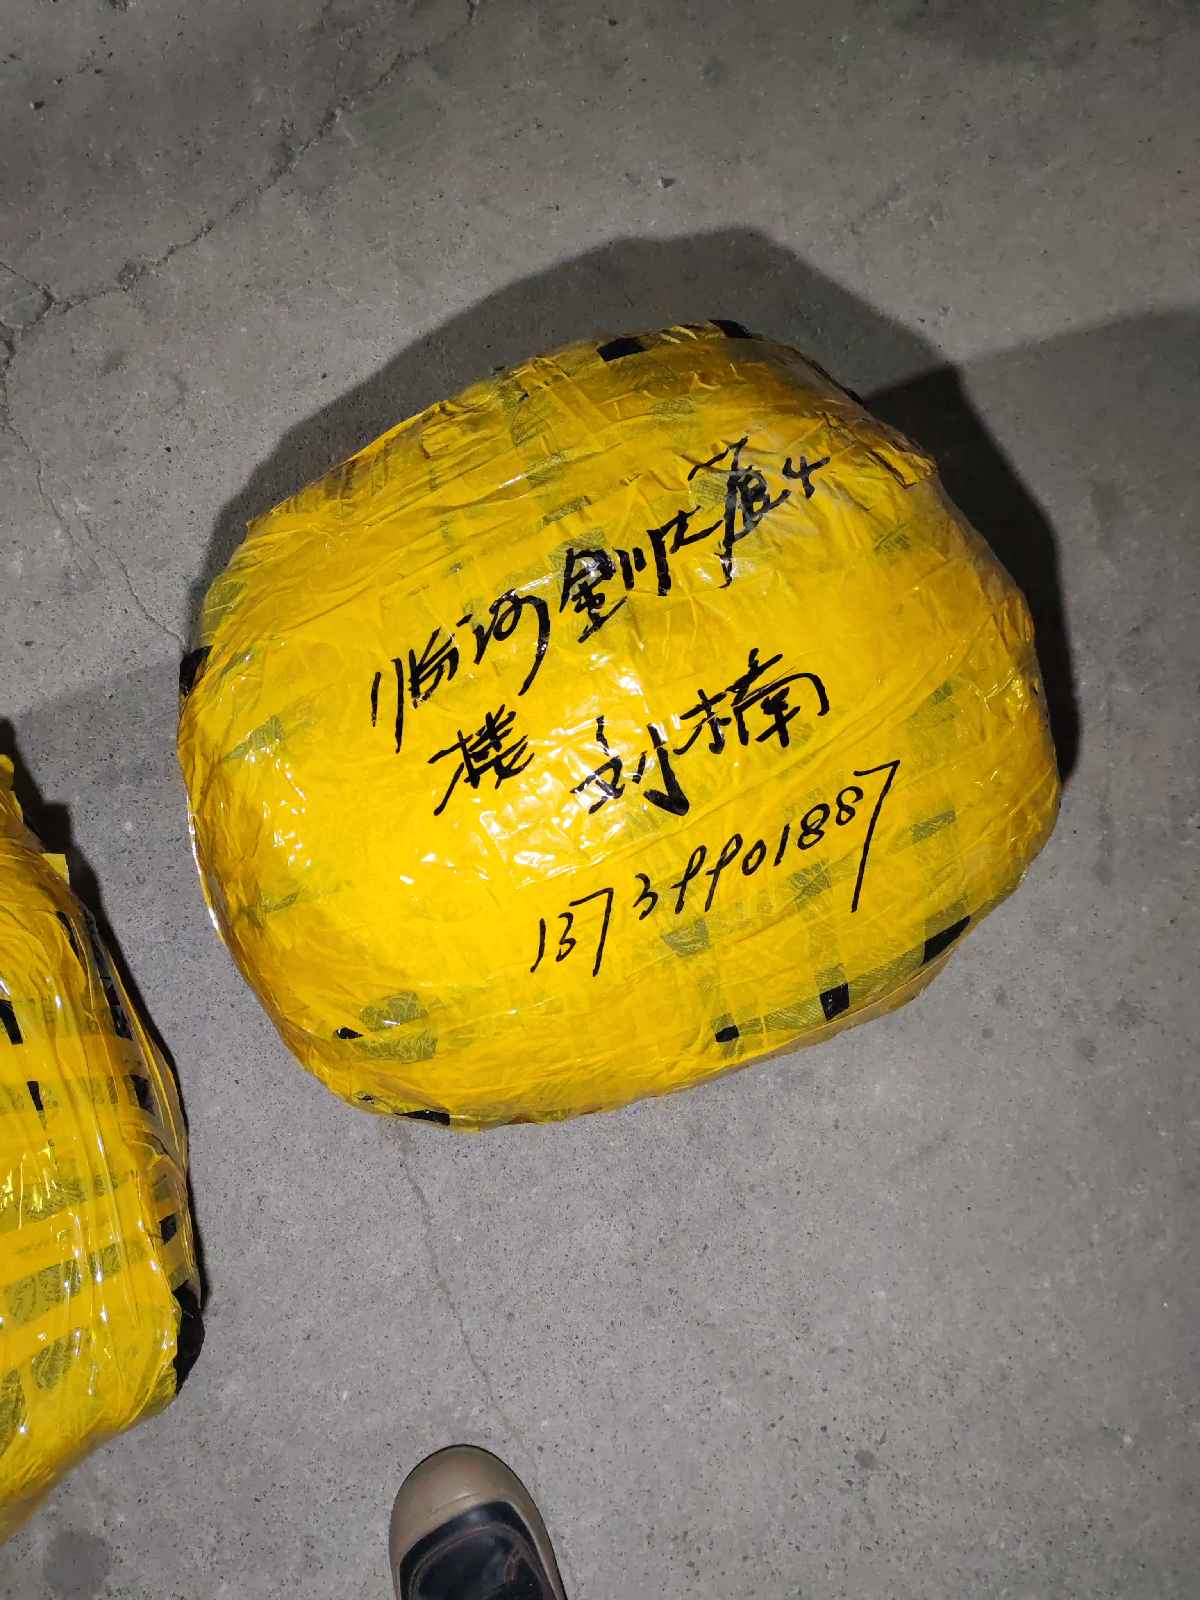 临河金川大道4
楼 刘楠
13739901887